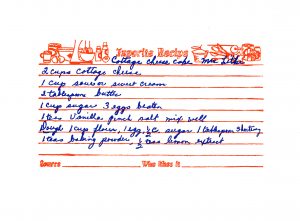 Favorite Recipe
Cottage cheese cake Mrs
2 cups cottage cheese
1 cup sour or sweet cream
2 tablespoons butter
1 cup sugar 3 eggs beaten
1 teas vanilla pinch salt mix well
Dough 1 cup flour, 1 egg, ½ c. sugar 1 tablespoon Shortening
1 teas baking powder, ½ teas lemon extract
Source Who likes it